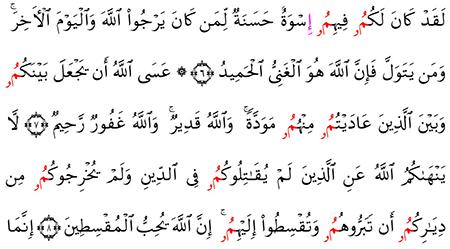 لَقَدْ كَانَ لَكُمُۥ فِيهِمُۥ إِسْوَةٌ حَسَنَةٌ لِّمَن كَانَ يَرْجُوا۟ ٱللَّهَ وَٱلْيَوْمَ ٱلْأَخِرَ ۚ
وَمَن يَتَوَلَّ فَإِنَّ ٱللَّهَ هُوَ ٱلْغَنِىُّ ٱلْحَمِيدُ ﴿٦﴾ ۞ عَسَى ٱللَّهُ أَن يَجْعَلَ بَيْنَكُمُۥ
وَبَيْنَ ٱلَّذِينَ عَادَيْتُمُۥ مِنْهُمُۥ مَوَدَّةً ۚ وَٱللَّهُ قَدِيرٌ ۚ وَٱللَّهُ غَفُورٌ رَّحِيمٌ ﴿٧﴾ لَّا
يَنْهَىٰكُمُ ٱللَّهُ عَنِ ٱلَّذِينَ لَمْ يُقَٰتِلُوكُمُۥ فِى ٱلدِّينِ وَلَمْ يُخْرِجُوكُمُۥ مِن
دِيَٰرِكُمُۥ أَن تَبَرُّوهُمُۥ وَتُقْسِطُوٓا۟ إِلَيْهِمُۥ ۚ إِنَّ ٱللَّهَ يُحِبُّ ٱلْمُقْسِطِينَ ﴿٨﴾ إِنَّمَا